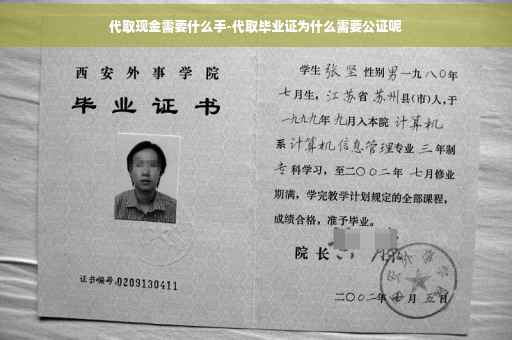 代取现金需要什么手-代取毕业证为什么需要公证呢
西安外事学院
毕业证书
证书编号:0209130411
学生 张坚 性别 男 一九八〇年
七月生，江苏省 苏州 县(市)人,于
一九九九年 九月入本院 计算机
系 计算机信息管理 专业 三 年制
专 科学习，至二〇〇二年 七月修业
期满，学完教学计划规定的全部课程，
成绩合格，准予毕业。
院长
二〇〇二年 月 五日